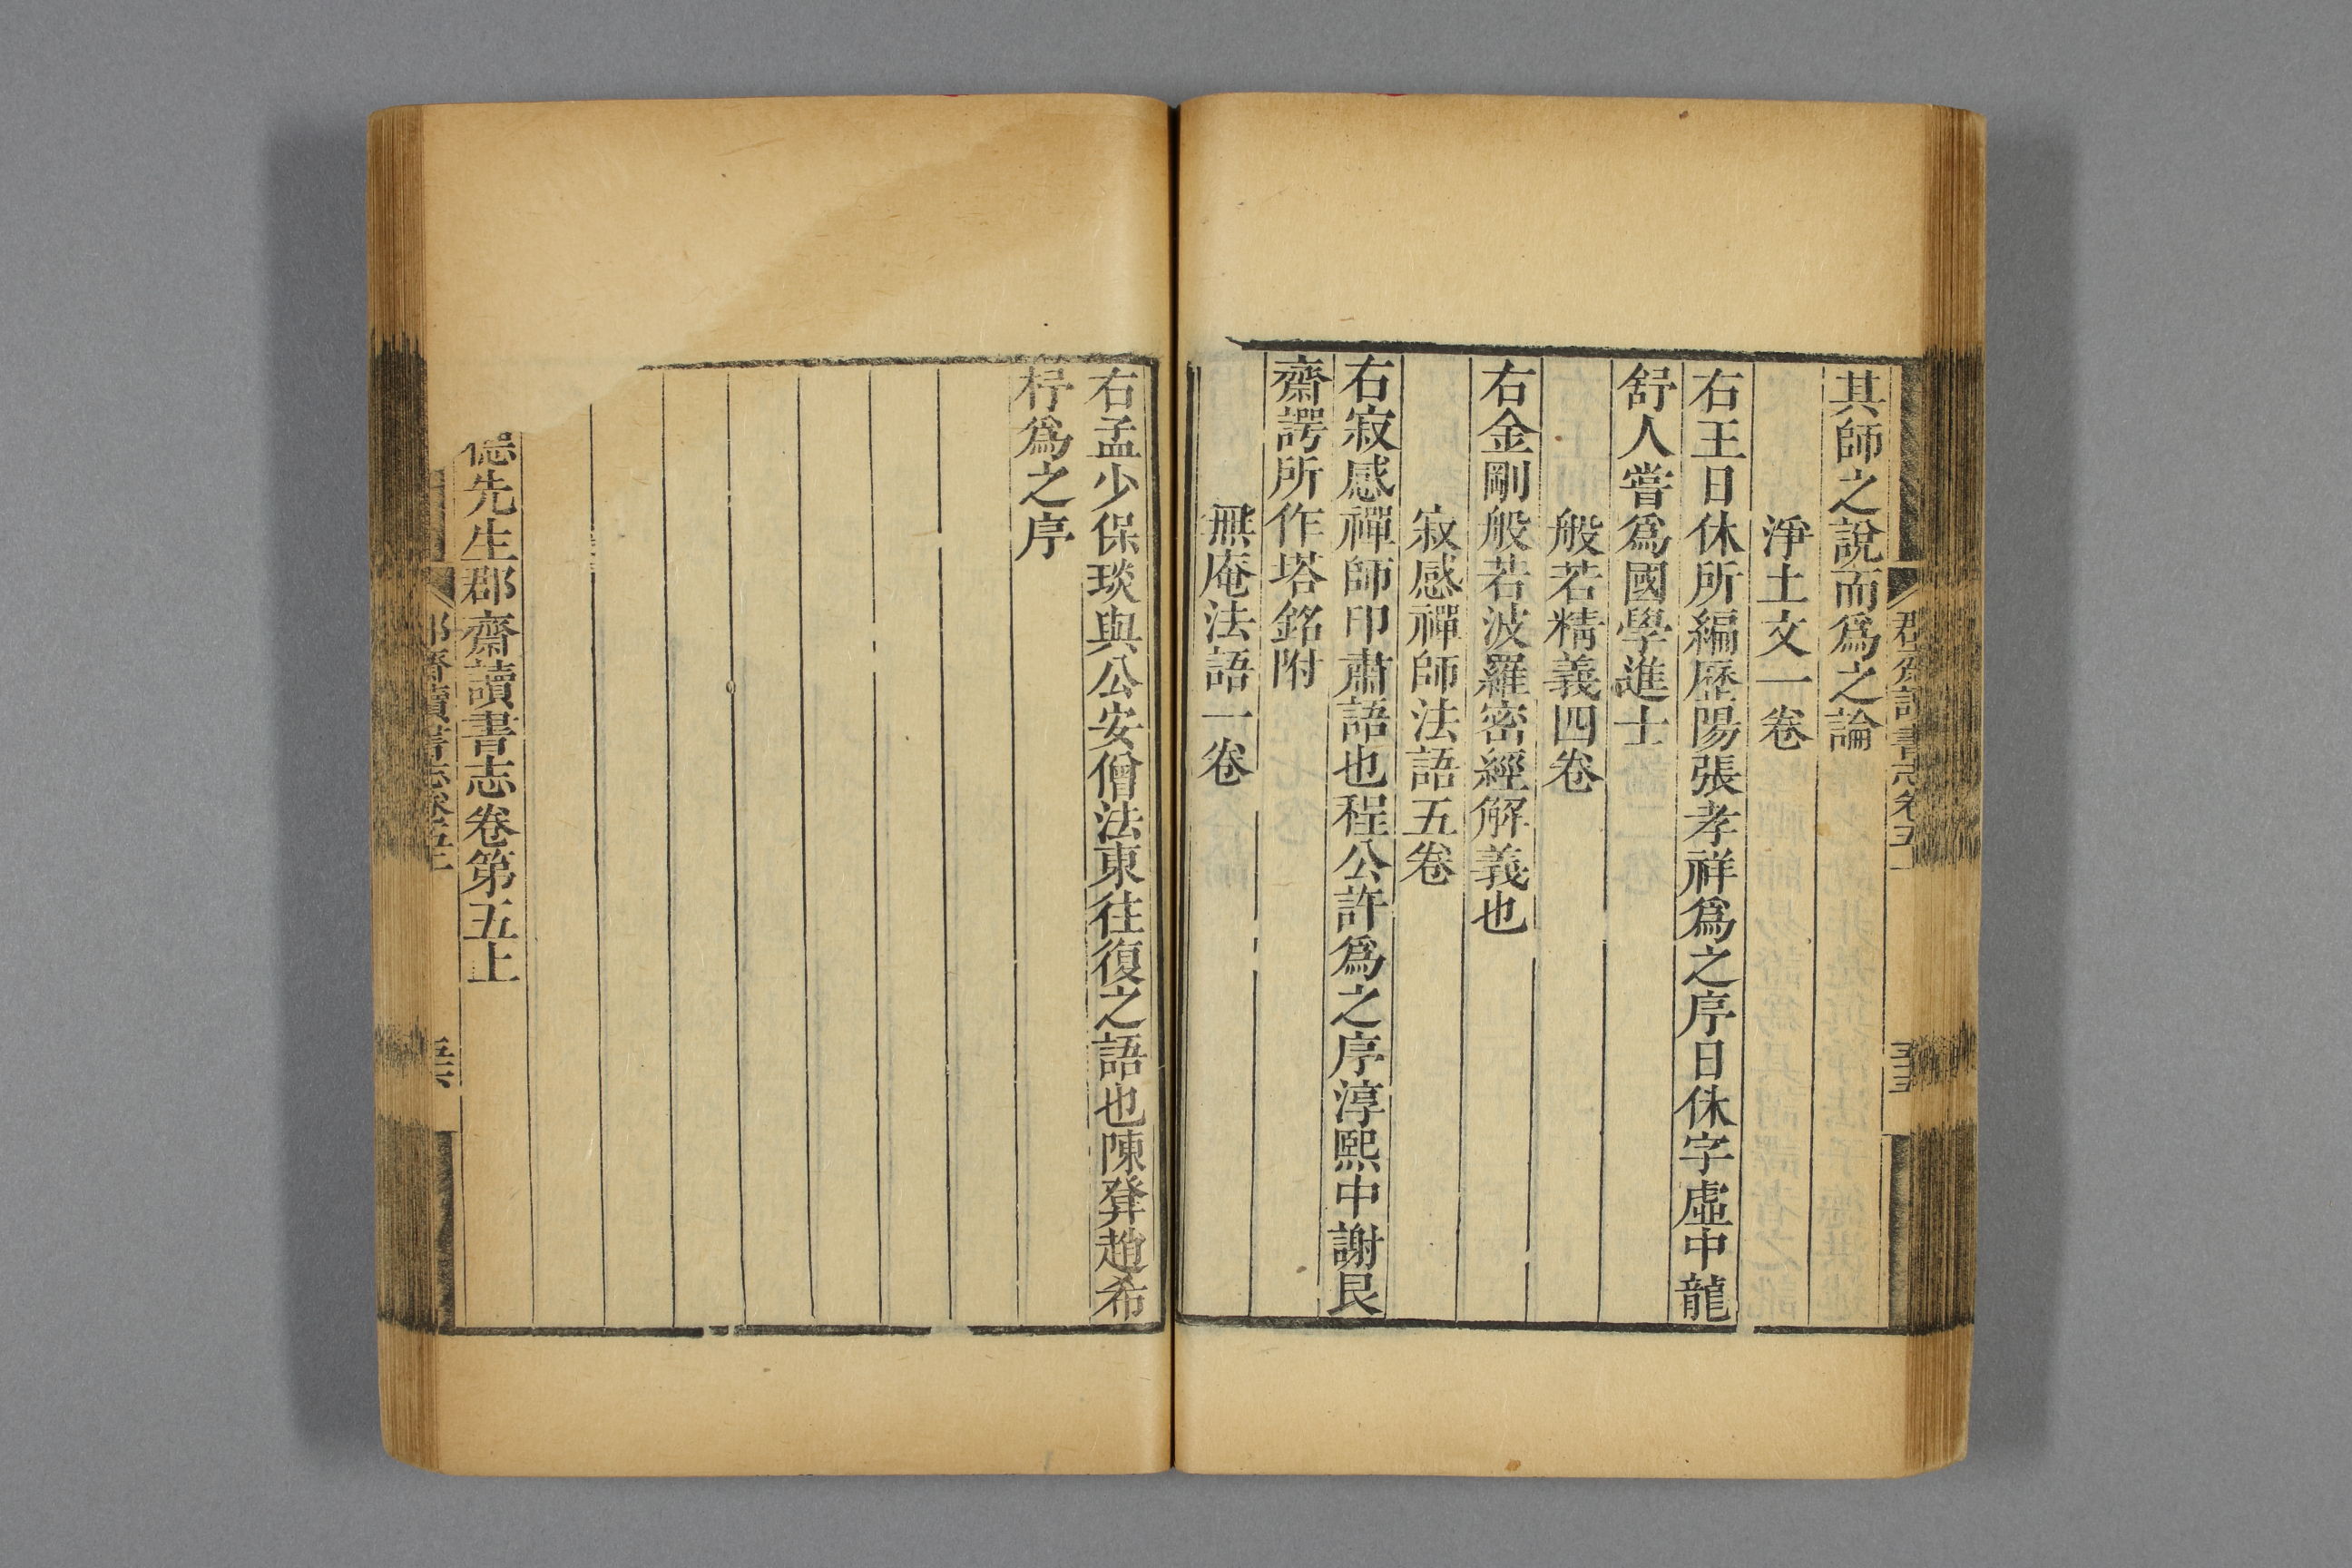 其師之說而爲之論
淨土文一卷
右王日休所編歷陽張孝祥爲之序日休字虛中龍
舒人嘗爲國學進士
般若精義四卷
右金剛般若波羅密經解義也
寂感禪師法語五卷
右寂感禪師印肅語也程公許爲之序淳熙中謝艮
齋諤所作塔銘附
無庵法語一卷
右孟少保琰與公安僧法東往復之語也陳貴趙希
㭒爲之序
德先生郡齋讀書志卷第五上
郡齋讀書志卷五上